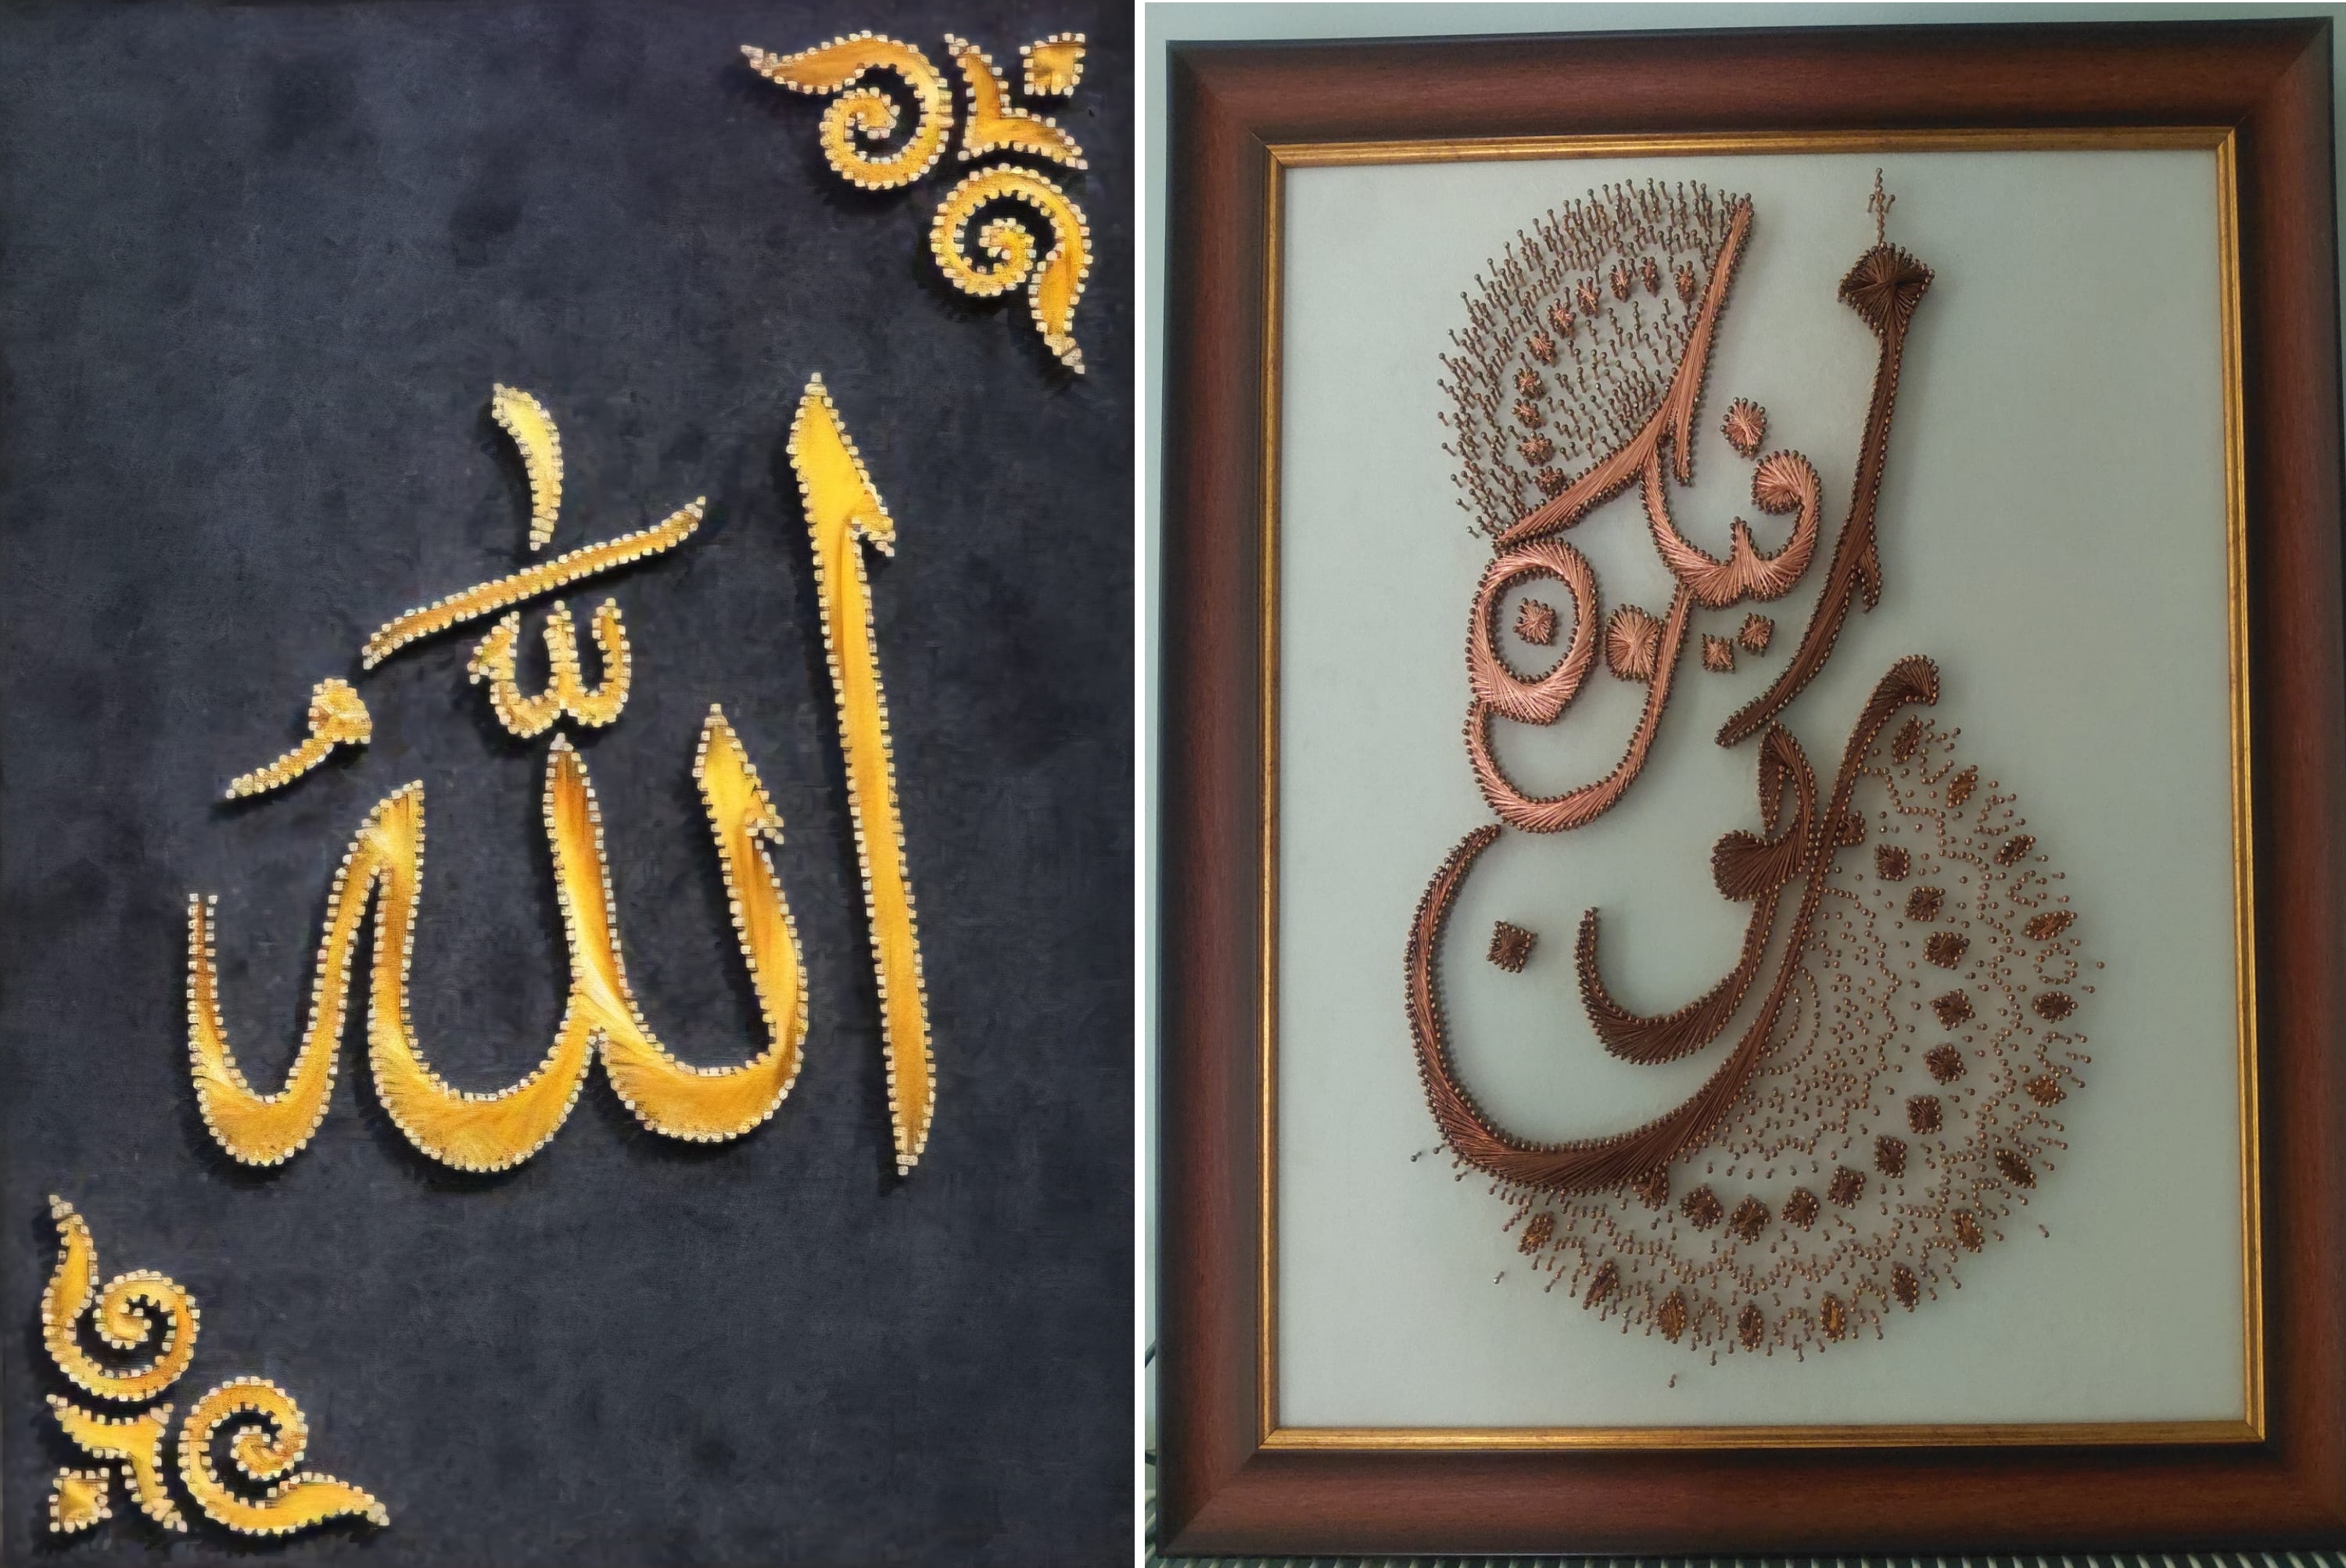 اللّٰه
كن فيكون